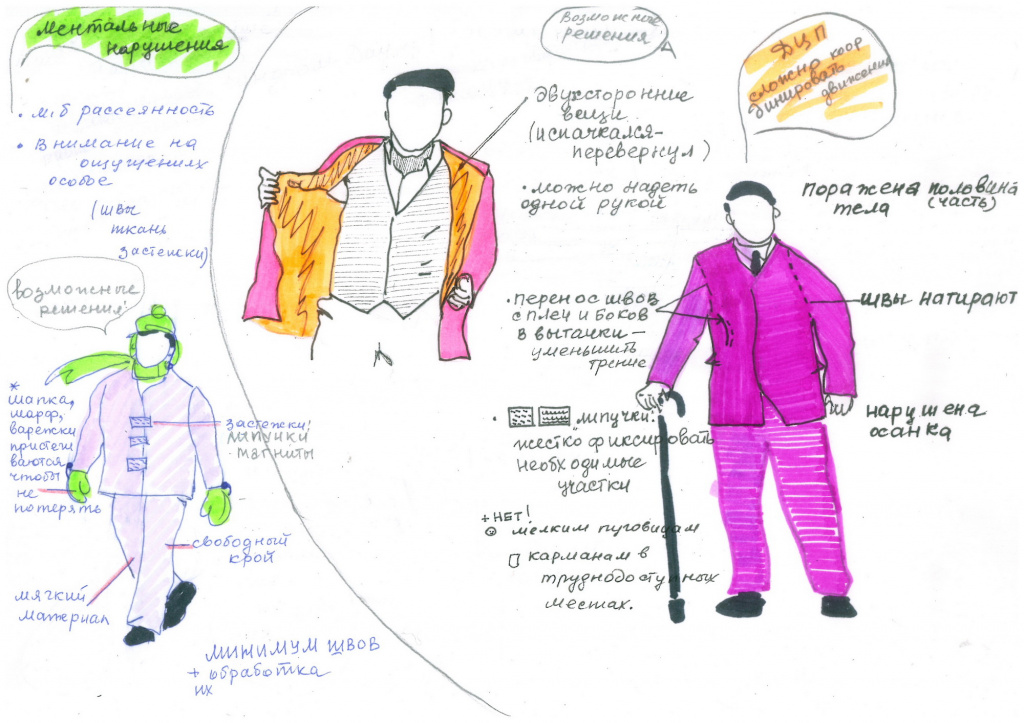 ментальные
нарушения
• м.б рассеянность
• Внимание на
ощущениях
особое
(швы
ткань
застежки)
возможные
решения!
*
шапка,
шарф,
варежки
пристеги
ваются
чтобы
не
потерять
застежки!
липучки
магниты
свободный
крой
мягкий
материал
минимум швов
+ обработка
их
Возможные
решения
Двухсторонние
вещи
(испачкался-
перевернул)
• можно надеть
одной рукой
• перенос швов
с плеч и боков
в вытачки –
уменьшить
трение
• липучки!
жестко фиксировать
необходимые
участки
+ НЕТ!
мелким пуговицам
карманам в
труднодоступных
местах.
ДЦП
сложно коор
динировать
движения
поражена половина
тела (часть)
швы натирают
нарушена
осанка